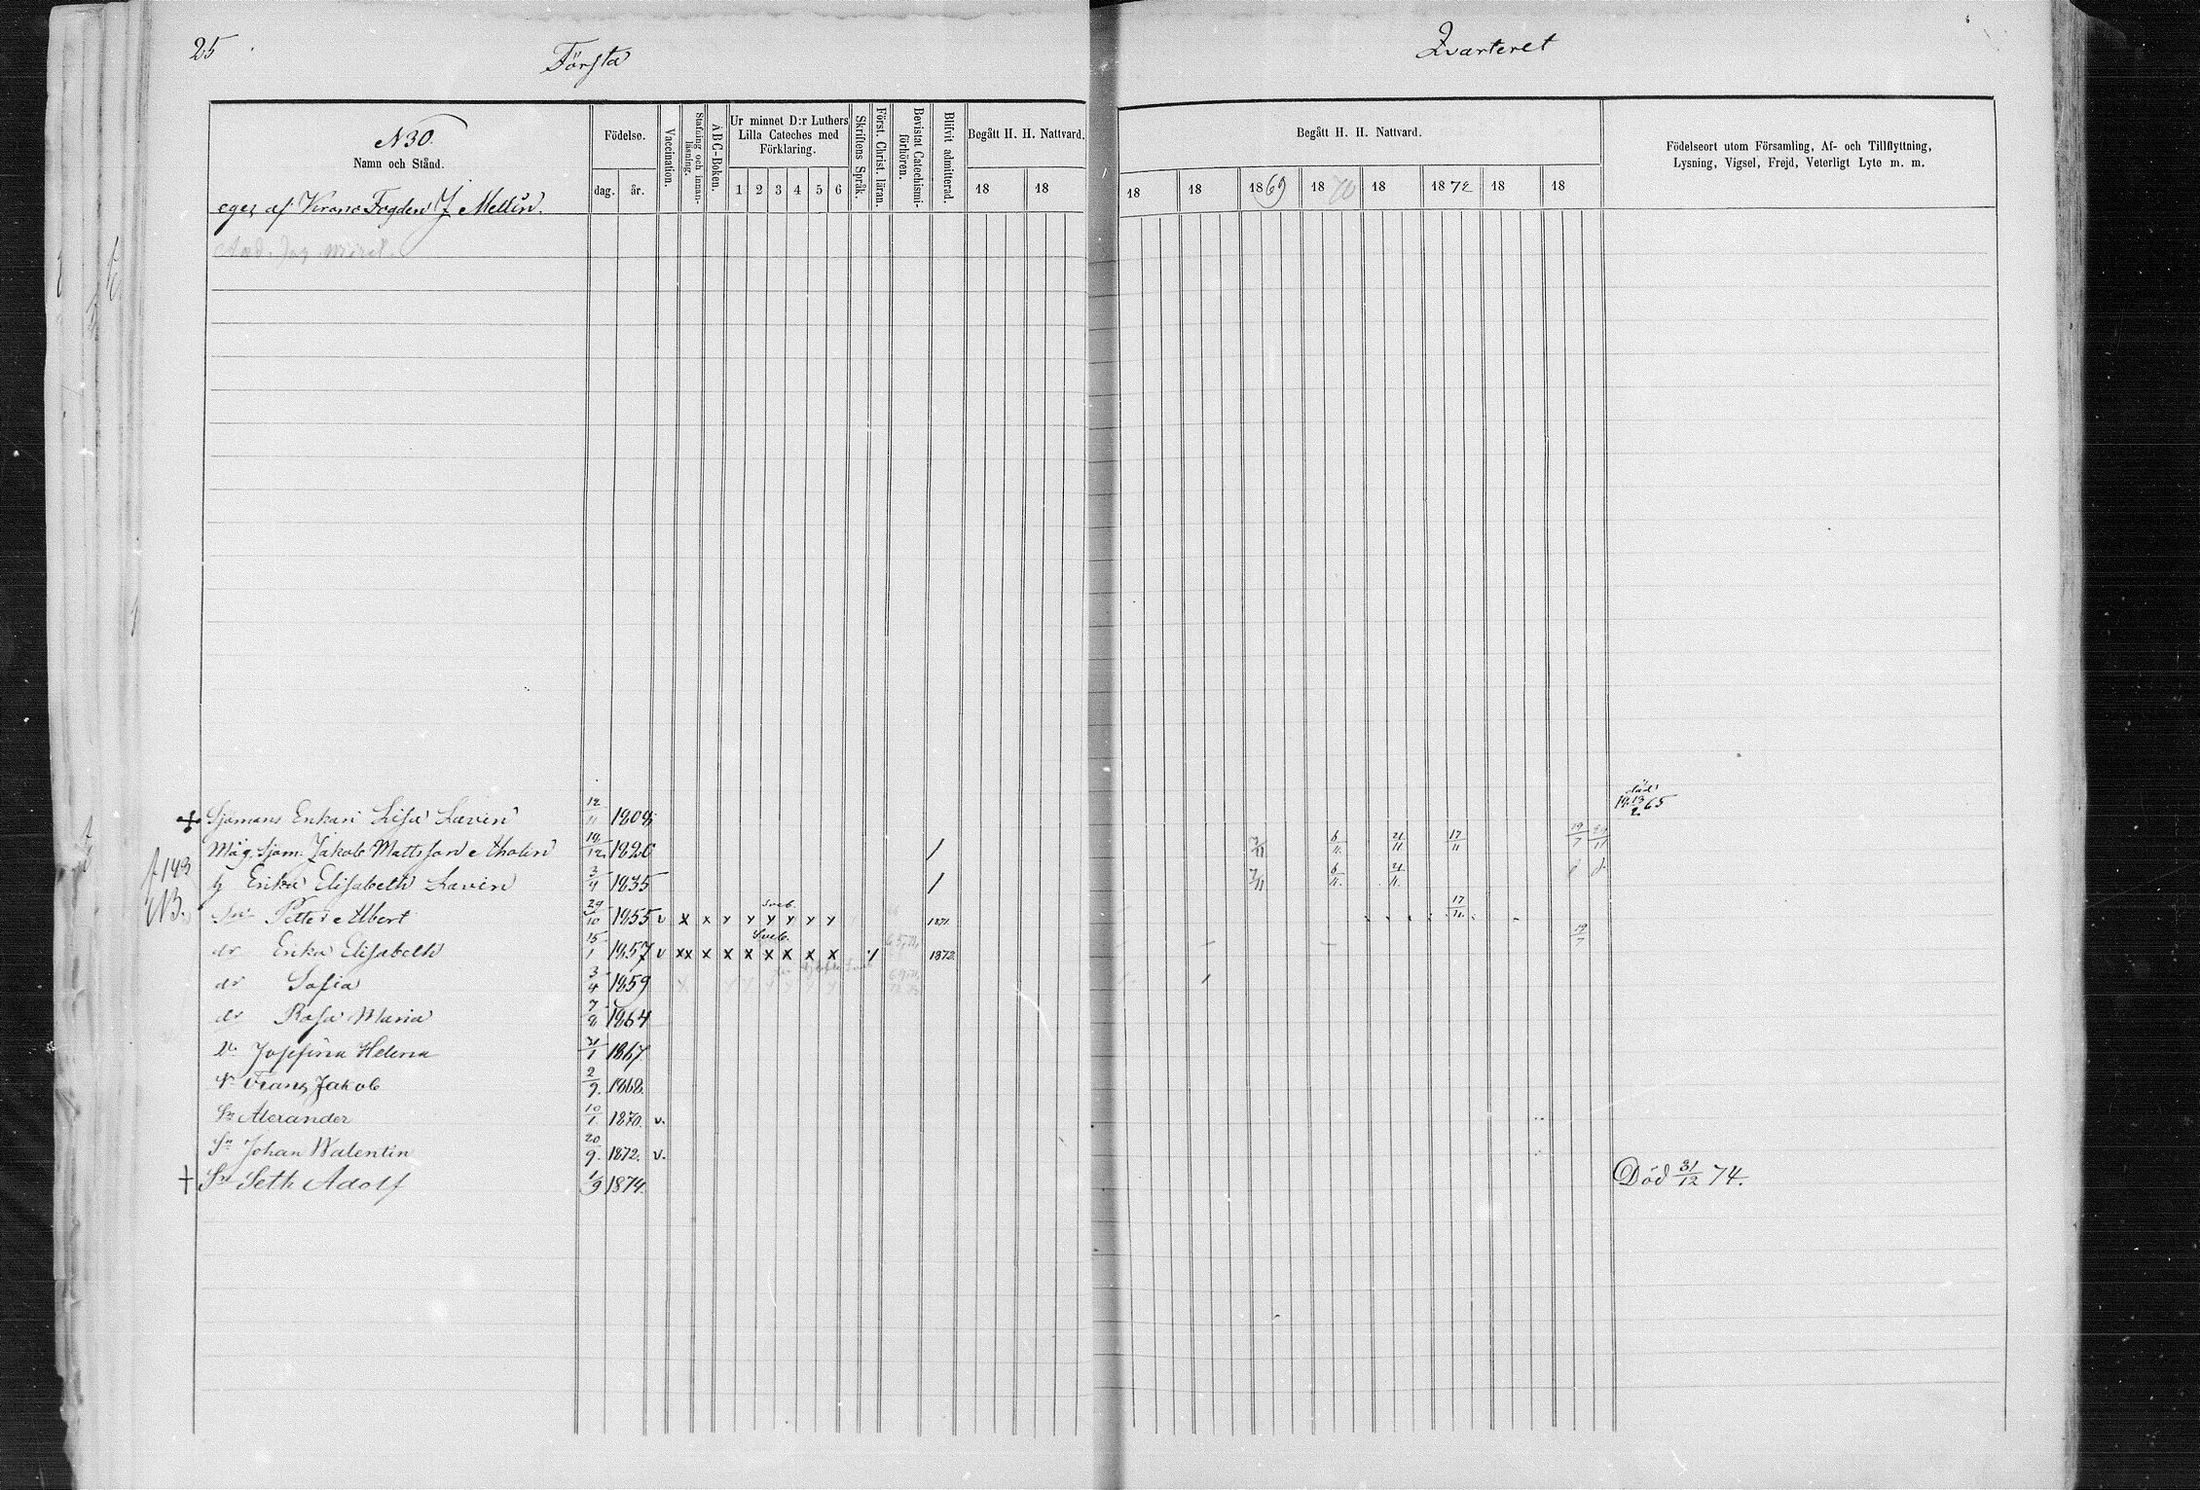 25
Första
Qvarteret
N 30.
Namn och Stånd.
Födelse.
dag. år.
Vaccination.
Stafning och innanläsning.
ABC-Boken.
Ur minnet D:r Luthers Lilla Cateches med Förklaring.
1 2 3 4 5 6
Skriftens Språk.
Först. Christ. läran.
Bevistat Catechismi-förhören.
Blifvit admitterad.
Begått H. H. Nattvard.
18 18
Begått H. H. Nattvard.
18 18 1869 1870 18 1872 18 18
Födelseort utom Församling, Af- och Tillflyttning,
Lysning, Vigsel, Frejd, Veterligt Lyte m. m.
eges af Krono Fogden J Mellin.
Sjömans Enkan Lisa Lavén 12/11 död 65
Måg. Sjöm. Jakob Mattsson Tholin 19/12 1826 / 7/11 6/11 21/11 17/11 19/7
f 143 h Erika Elisabeth Lavén 3/4 1835 / 7/11 6/11 21/11
NB. Sn Petter Albert 29/10 1855 v x x y y y y y y 1871. 17/11
Sveb.
dr Erika Elisabeth 15/1 1857 v xx x x x x x x x 1 1872. 19/7
Sveb.
dr Sofia 3/4 1859
dr Rosa Maria 7/8 1864
Dr Josefina Helena 21/1 1867.
Sn Frans Jakob 2/9. 1868.
Sn Alexander 10/1 1870. v.
Sn Johan Walentin 20/9. 1872. v.
† Sn Seth Adolf 1/9 1874. Död 31/12 74.